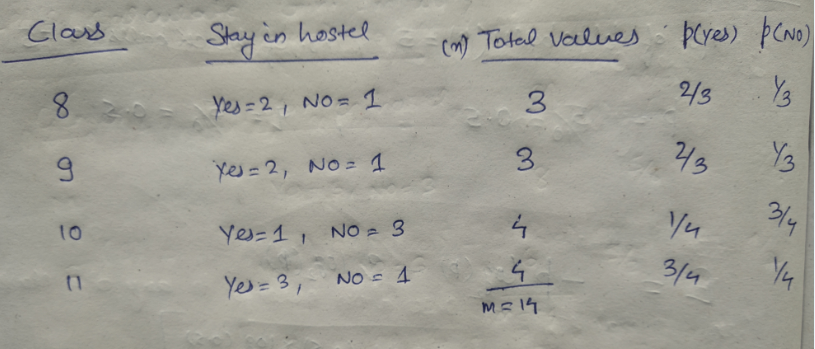 Class Stay in hostel (n) Total values p(yes) p(NO)
8 Yes=2, NO=1 3 2/3 1/3
9 Yes=2, NO=1 3 2/3 1/3
10 Yes=1, NO=3 4 1/4 3/4
11 Yes=3, NO=1 4 3/4 1/4
m=14